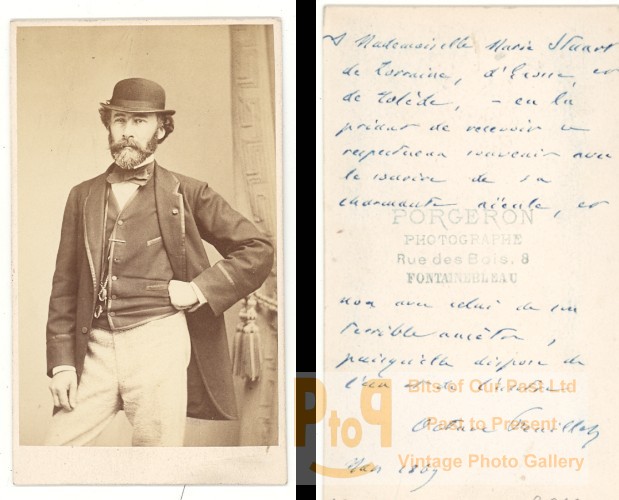 A Mademoiselle Marie Stuart
de Lorraine, d'Ecosse, et
de Tolède, – en la
priant de recevoir ce
respectueux souvenir avec
le sourire de sa
charmante aïeule, et
PORGERON
PHOTOGRAPHE
Rue des Bois. 8
FONTAINEBLEAU
non avec celui de son
terrible ancêtre,
puisqu'elle dispose de
l'un
Octave Feuillet
1869
PtoP
Bits of Our Past Ltd
Past to Present
Vintage Photo Gallery